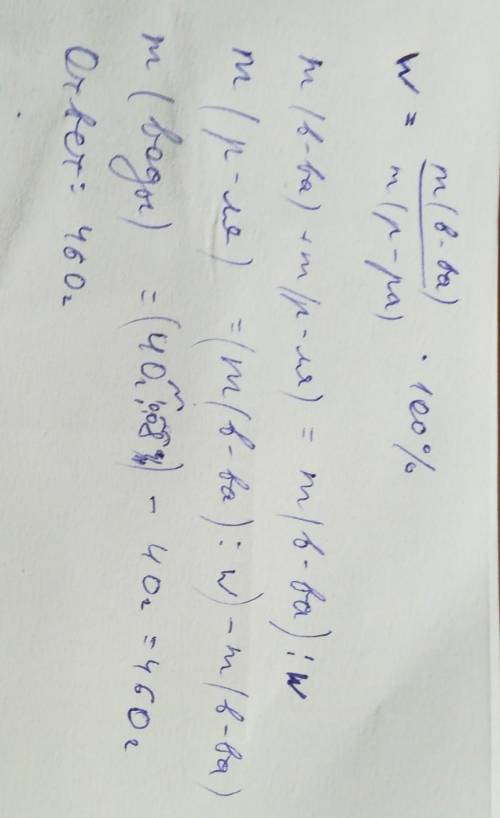 w = m(в-ва) / m(р-ра) · 100%
m(в-ва) + m(р-ля) = m(в-ва) : w
m(р-ля) = (m(в-ва) : w) - m(в-ва)
m(воды) = (40г : ) - 40г = 460г
Ответ: 460г